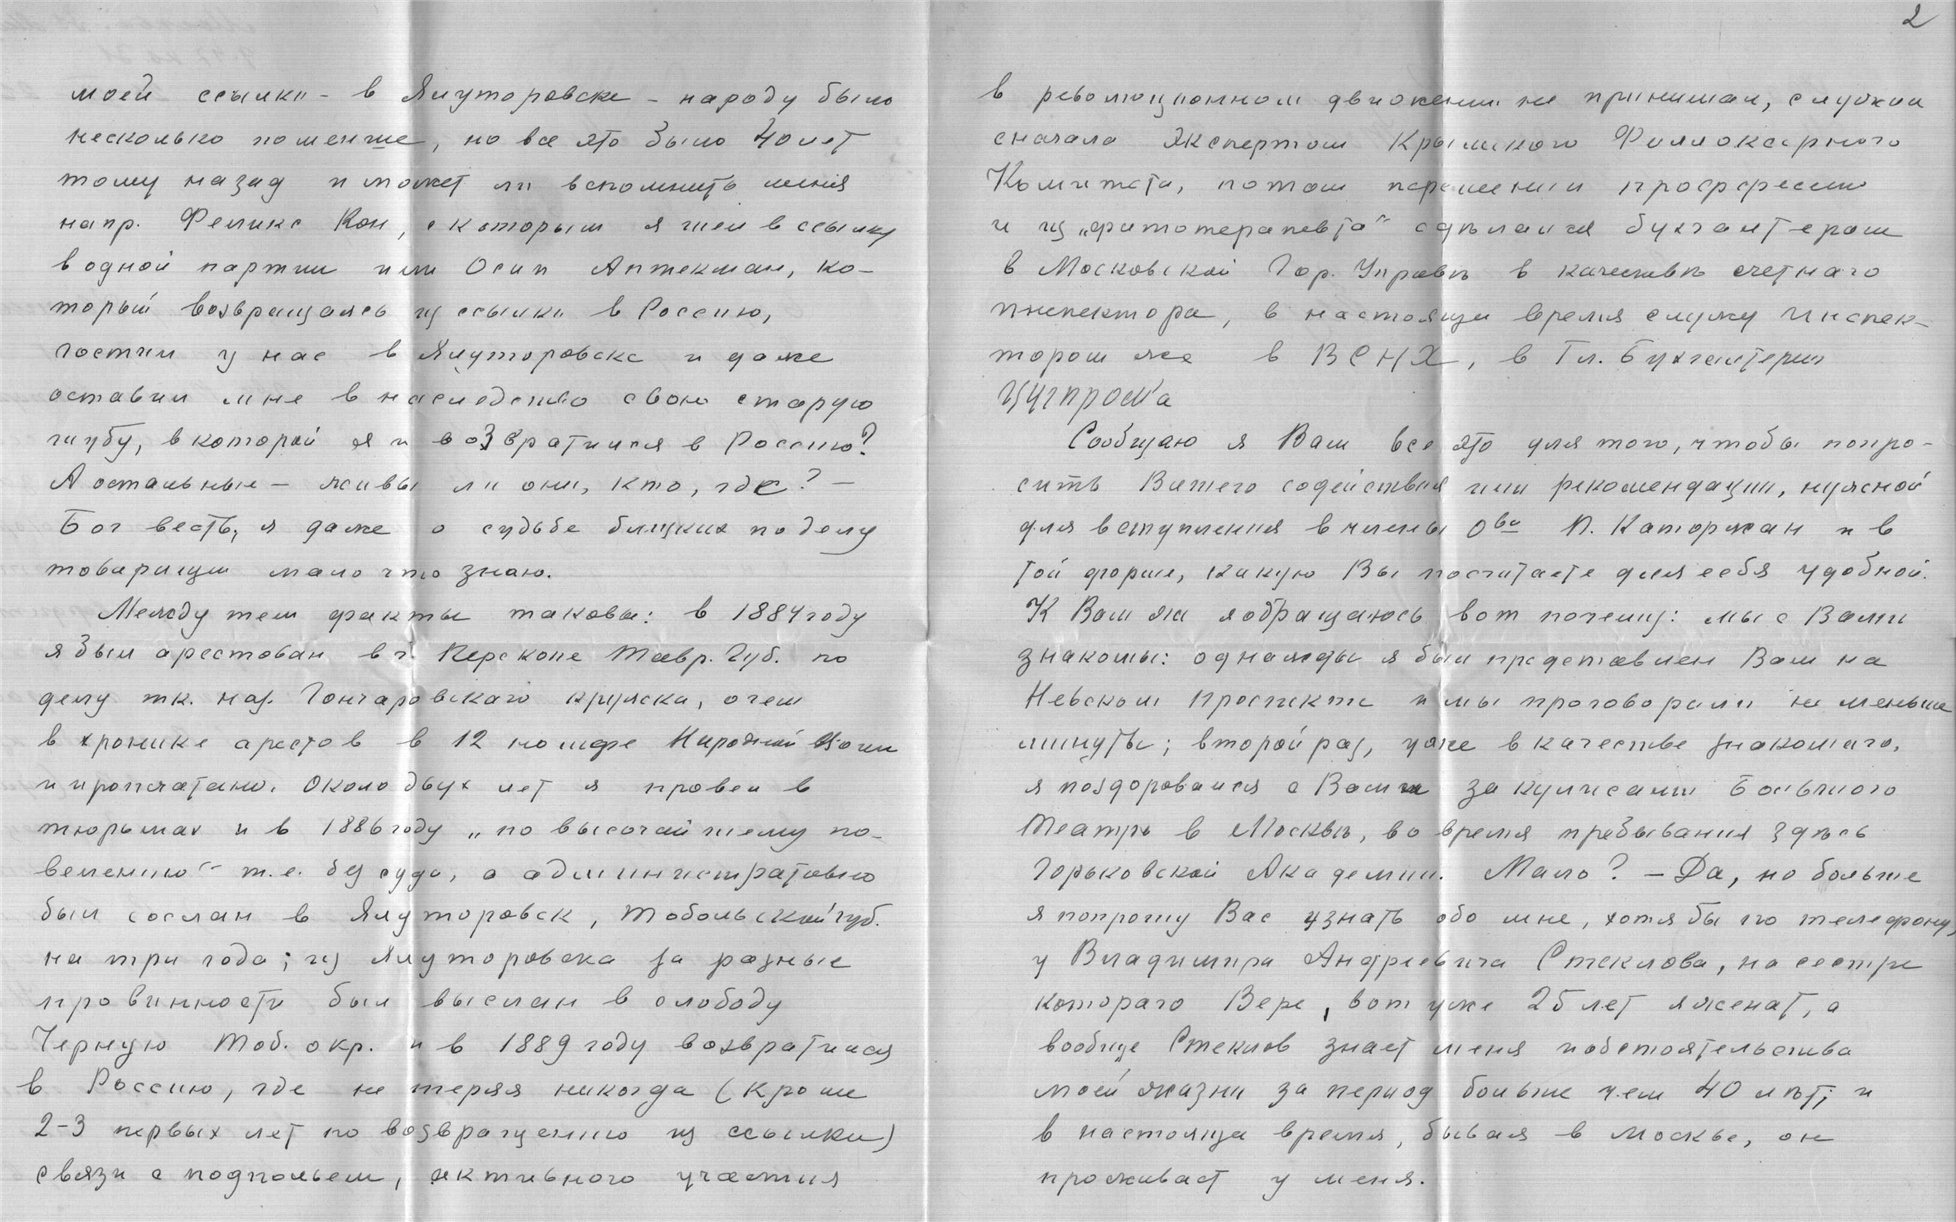 2
моей ссылки – в Ялуторовске – народу было
несколько поменше, но все это было 40 лет
тому назад и может ли вспомнить меня
напр. Феликс Кон, с которым я шел в ссылку
в одной партии или Осип Аптекман, ко–
торый возвращаясь из ссылки в Россию,
гостил у нас в Ялуторовске и даже
оставил мне в наследство свою старую
шубу, в которой я и возвратился в Россию?
А остальные – живы ли они, кто, где? –
Бог весть, я даже о судьбе близких по делу
товарищей мало что знаю.
Между тем факты таковы: в 1884 году
я был арестован в г. Перекопе Тавр. Губ. по
делу тк. наз. Гончаровскаго кружска, о чем
в хронике арестов в 12 номере Народной Воли
и пропечатано. Около двух лет я провел в
тюрьмах и в 1886 году „по высочайшему по–
велению“ т.е. без суда, а административно
был сослан в Ялуторовск, Тобольской губ.
на три года; из Ялуторовска за разные
провинности был выслан в слободу
Черную Тоб. окр. и в 1889 году возвратился
в Россию, где не теряя никогда (кроме
2–3 первых лет по возвращению из ссылки)
связи с подпольем, активного участия
в революционном движении не принимал, служил
сначала экспертом Крымского Филлоксерного
Комитета, потом переменил профрессию
и из „фитотерапевта“ сделался бухгалтером
в Московской Гор. Управе в качестве счетнаго
инспектора, в настояще время служу инспек–
тором же в ВСНХ, в Гл. Бухгалтерии
Цугпром'а
Сообщаю я Вам все это для того, чтобы попро–
сить Вашего содействия или рекомендации, нужной
для вступления в члены Ова П. Каторжан и в
той форме, какую Вы посчитаете для себя удобной.
К Вам же я обращаюсь вот почему: мы с Вами
знакомы: однажды я был представлен Вам на
Невском проспекте и мы проговорили не меньше
минуты; второй раз, уже в качестве знакомаго,
я поздоровался с Вами за кулисами Большого
Театра в Москвѣ, во время пребывания здѣсь
Горьковской Академии. Мало? – Да, но больше
я попрошу Вас узнать обо мне, хотя бы по телефону,
у Владимира Андреевича Стеклова, на сестре
котораго Вере, вот уже 25 лет я женат, а
вообще Стеклов знает меня и обстоятельства
моей жизни за период больше чем 40 лѣт; и
в настояще время, бывая в Москве, он
проживает у меня.